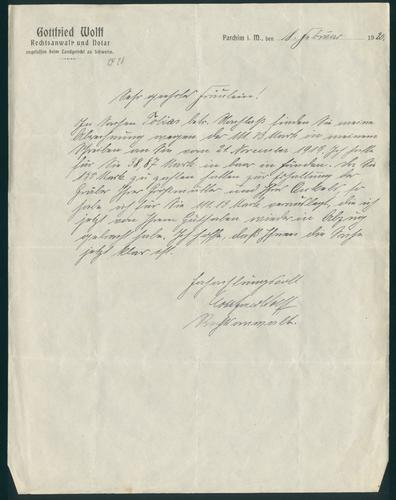 Gottfried Wolff
Rechtsanwalt und Notar
zugelassen beim Landgericht zu Schwerin.
Parchim i. M., den 11. Februar 1920.
Sehr geehrtes Fräulein!
In Sachen Tobias betr. Nachlass finden Sie meine
Abrechnung wegen der M 13 Mark in meinem
Schreiben an Sie vom 21. November 1919. Ich hatte
für Sie 5887 Mark in bar in Händen. Da Sie
Mark zu zahlen hatten zur Erhaltung der
Gräber Ihrer Großmutter und Ihres Onkels, so
habe ich für Sie M 13 Mark verauslagt, die ich
jetzt von Ihrem Guthaben wieder in Abzug
gebracht habe. Ich hoffe, daß Ihnen die Sache
jetzt klar ist.
Hochachtungsvoll
Gottfried Wolff
Rechtsanwalt.